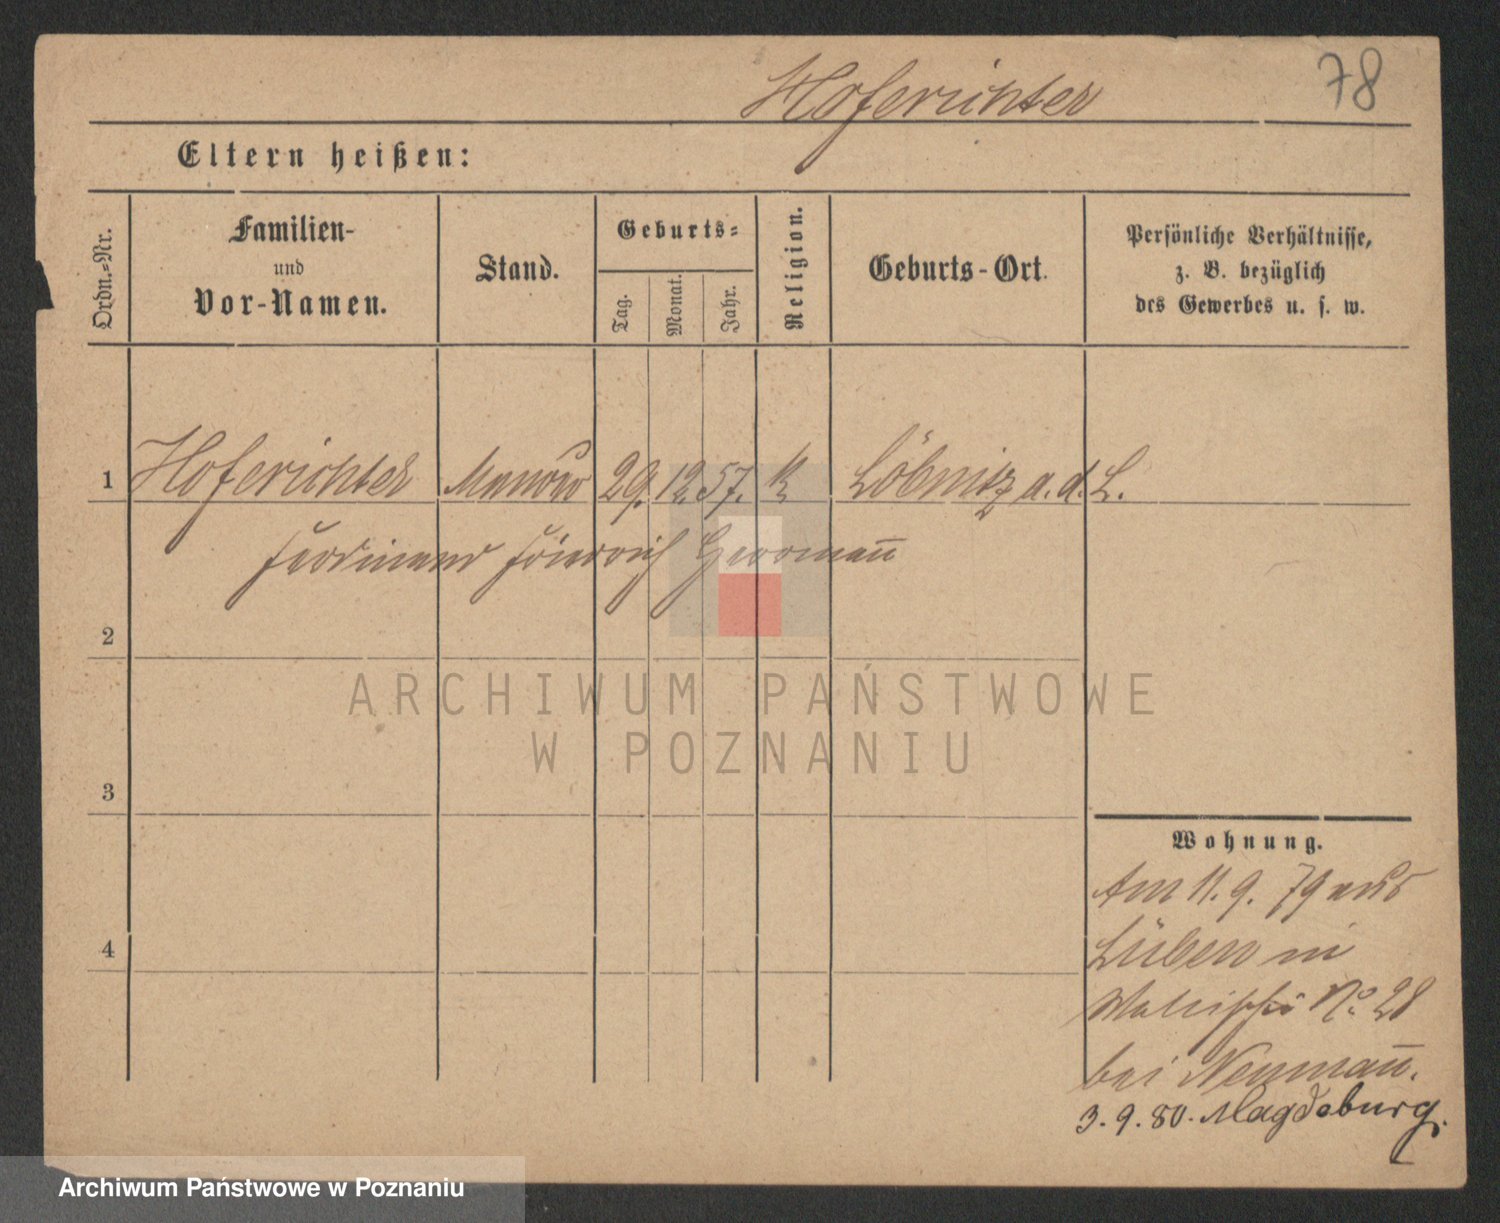 78
Hoferichter
Eltern heißen:
Ordn.=Nr.
Familien-
und
Vor-Namen.
Stand.
Geburts=
Tag.
Monat.
Jahr.
Religion.
Geburts-Ort.
Persönliche Verhältnisse,
z. B. bezüglich
des Gewerbes u. s. w.
1 Hoferichter 29. 12 57. k Löbnitz a. d. L.
Ferdinand Friedrich Hermann
2
3
4
Wohnung.
Am 11. 9. 79 aus
Lüben in
No. 28
bei Neumann.
3. 9. 80. Magdeburg.
ARCHIWUM PAŃSTWOWE
W POZNANIU
Archiwum Państwowe w Poznaniu